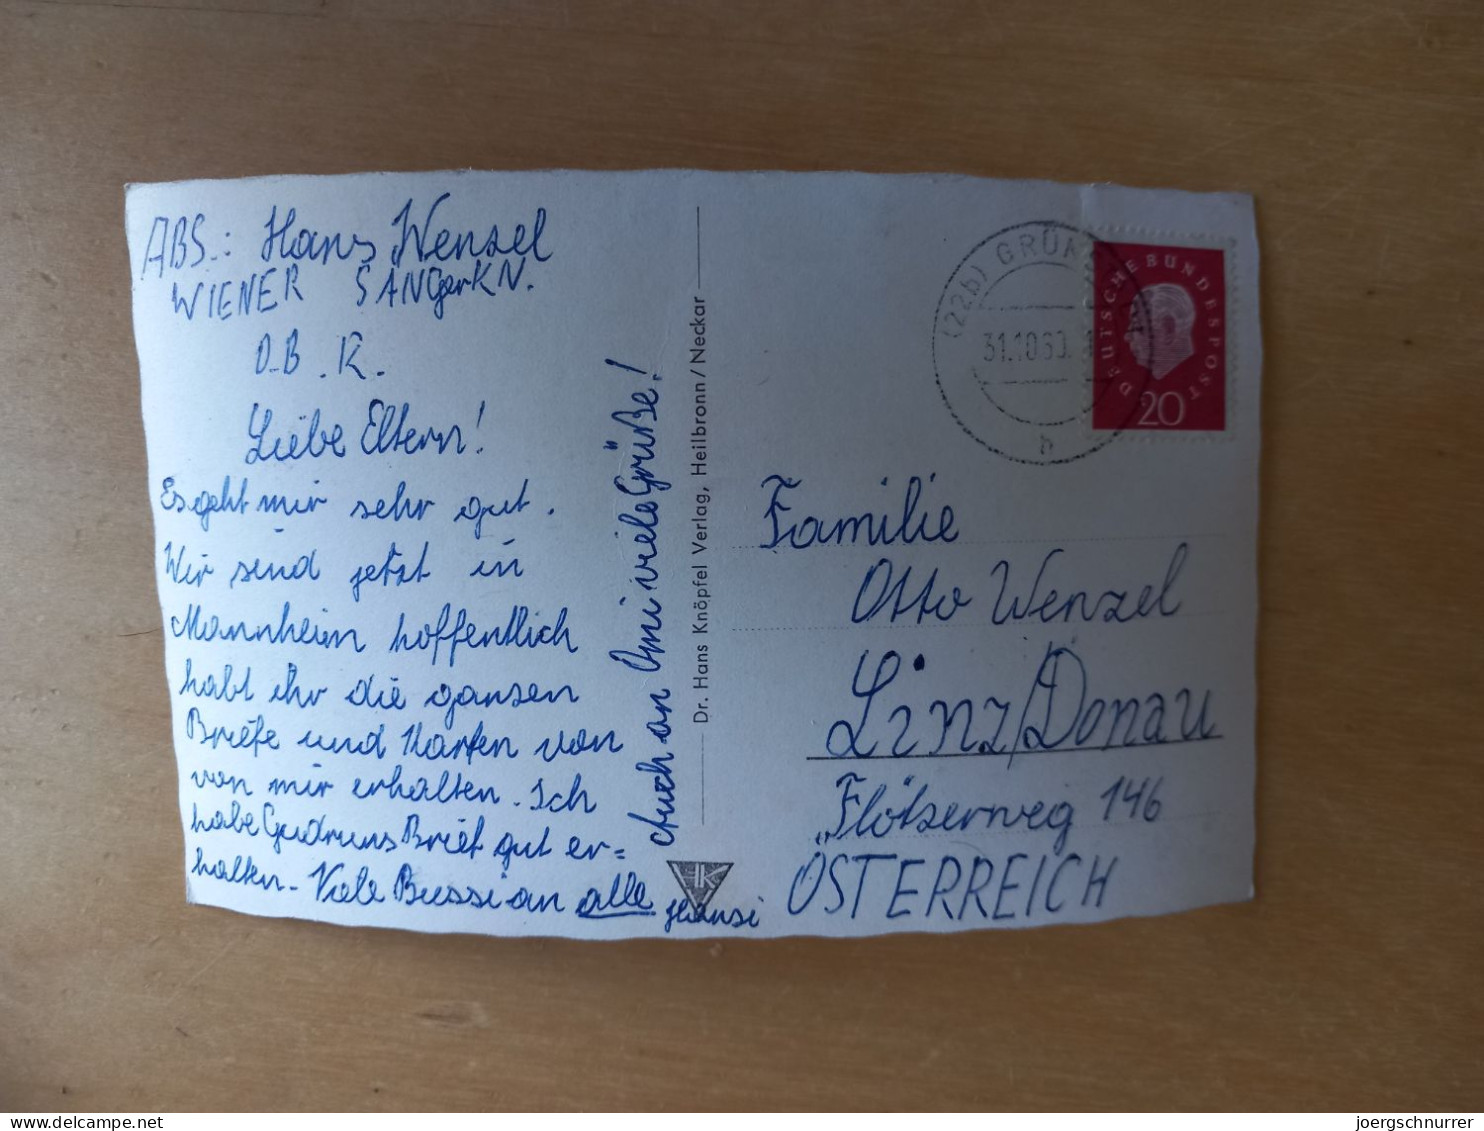 ABS.: Hans Wenzel
WIENER SANGerKN.
D.B.R.
Liebe Eltern!
Es geht mir sehr gut.
Wir sind jetzt in
Mannheim hoffentlich
habt ihr die ganzen
Briefe und Karten von
von mir erhalten. Ich
habe Gudruns Brief gut er=
halten. Viele Bussi an alle Hansi
Auch an Omi viele Grüße!
Dr. Hans Knöpfel Verlag, Heilbronn/Neckar
K
(22b) GRÜN
31.10.60.
b
DEUTSCHE BUNDESPOST
20
Familie
Otto Wenzel
Linz/Donau
Flötzerweg 146
ÖSTERREICH
joergschnurrer